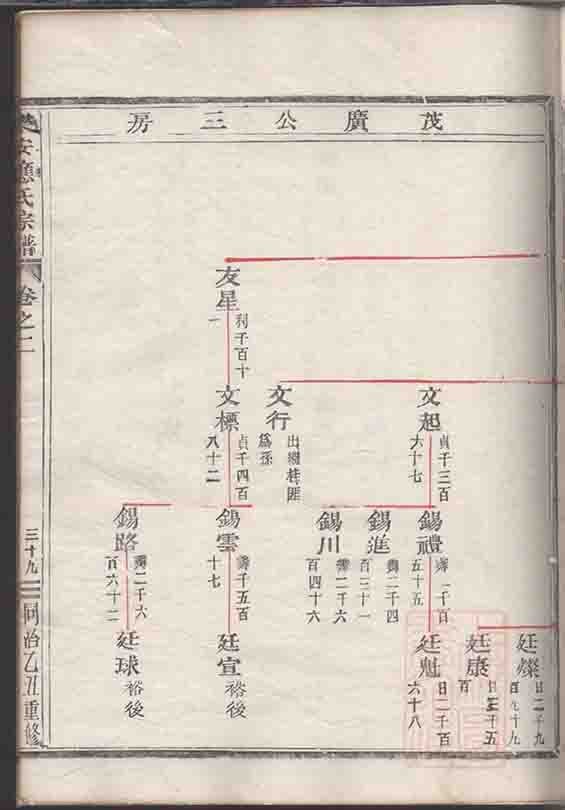 茂廣公三房
廷燦
日二千九
百九十九
廷康
日三千五
百
文起
貞千三百
六十七
錫禮
千百
五十五
廷魁
日二千百
六十八
錫進
二千四
百三十一
錫川
二千六
百四十六
文行
出繼桂匪
爲孫
友星
利千百十
一
文標
貞千四百
八十二
錫雲
千五百
十七
廷宣
裕後
錫路
二千六
百六十二
廷球
裕後
安應氏宗譜
卷之二
三十九
同治乙丑重修